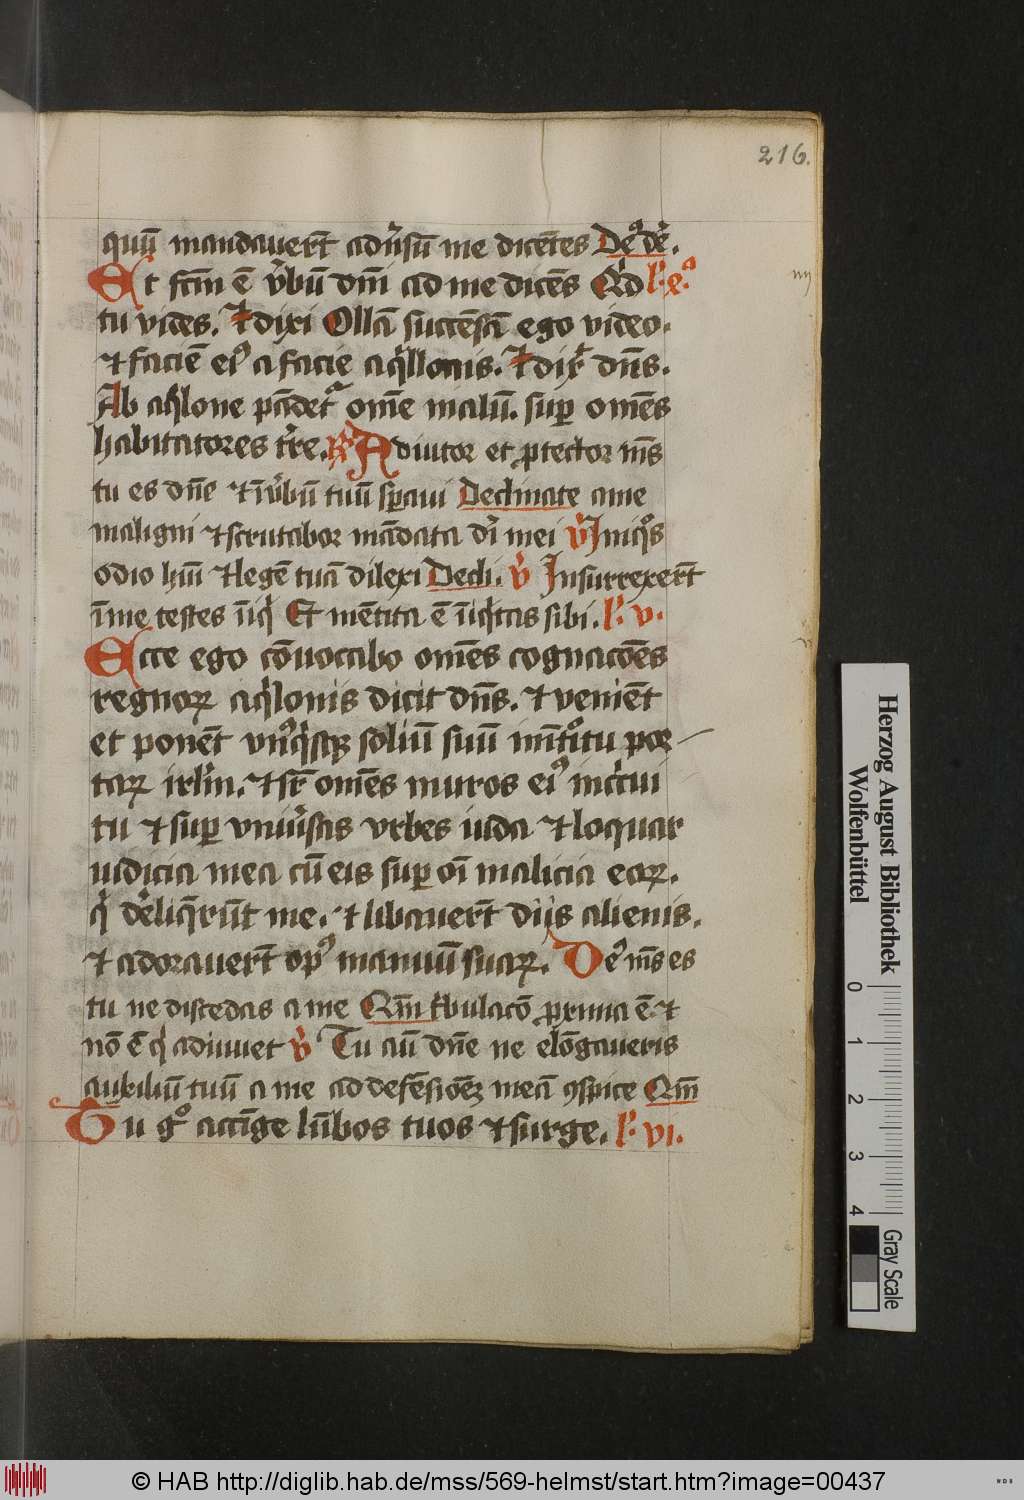 216.
quū mandauert̄ aduˀsū me dicētes Deꝰ dē.
Et fcm̄ ē vˀbū dn̄i ad me dicēs Qͥd
tu vides. Et dixi Ollā succēsā ego video.
⁊ faciē eiꝰ a facie aqͥlonis. Et dix̄ dn̄s.
Ab aqͥlone pādet᷑ om̄e malū. suꝑ om̄es
habitatores tr̄re. R̄ Adiutor et ꝓtector me̅s
tu es dn̄e ⁊ ī vˀbū tuū sꝑaui Declinate a me
maligni ⁊ scrutabor mādata dī mei v̄ Iniqͦs
odio hūi ⁊ legē tuā dilexi Decli. v̄ Insurrexert̄
ī me testes īiqͥ Et mētita ē īiqͥtas sibi. l. v.
Ecce ego cōuocabo om̄es cognacōes
regnoꝝ aqͥlonis dicit dn̄s. ⁊ veniēt
et ponēt vnꝰqͥsqꝫ soliū suū in ītͦitu por
taꝝ irlm̄. ⁊ sr̄ om̄es muros eiꝰ in cͥcui
tu ⁊ suꝑ vniuˀsas vrbes iuda ⁊ loquar
iudicia mea cū eis suꝑ oī malicia eoꝝ.
qͥ dēliqͥrūt me. ⁊ libauert̄ diis alienis.
⁊ adorauert̄ opꝰ manuū suaꝝ. Deꝰ me̅s es
tu ne discedas a me Qm̄ tͥbulacō ꝓxima ē ⁊
nō ē qͥ adiuuet v̄ Tu aū dn̄e ne elōgaueris
auxiliū tuū a me ad defēsiōeꝫ meā ꝯspice Qm̄
Tu gͦ accīge lūbos tuos ⁊ surge. l. vi.
Herzog August Bibliothek
Wolfenbüttel
0 1 2 3 4
Gray Scale
© HAB http://diglib.hab.de/mss/569-helmst/start.htm?image=00437